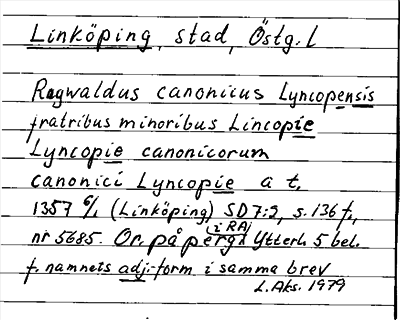 Linköping, stad, Östg. l
Ragwaldus canonicus Lyncopensis
fratribus minoribus Lincopie
Lyncopie canonicorum
canonici Lyncopie a t.
1357 6/1 (Linköping) SD 7:2, s. 136 f.,
nr 5685. Or. på perg. (i RA) Ytterl. 5 bel.
f. namnets adj.-form i samma brev
L. Aks. 1979